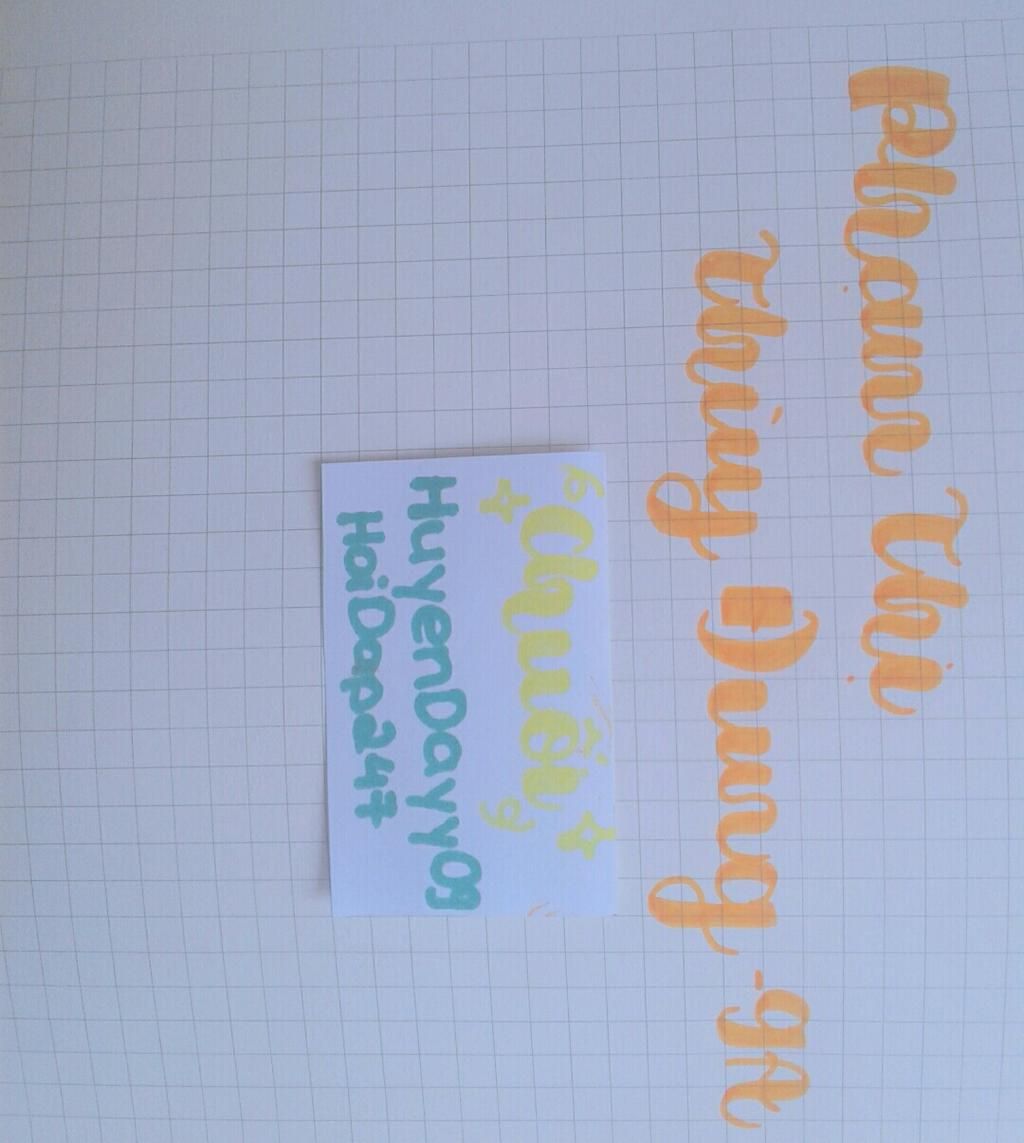 Phạm Thị
Thùy Dung - 9A
Chuôi
HuyenDayy09
HoiDap247